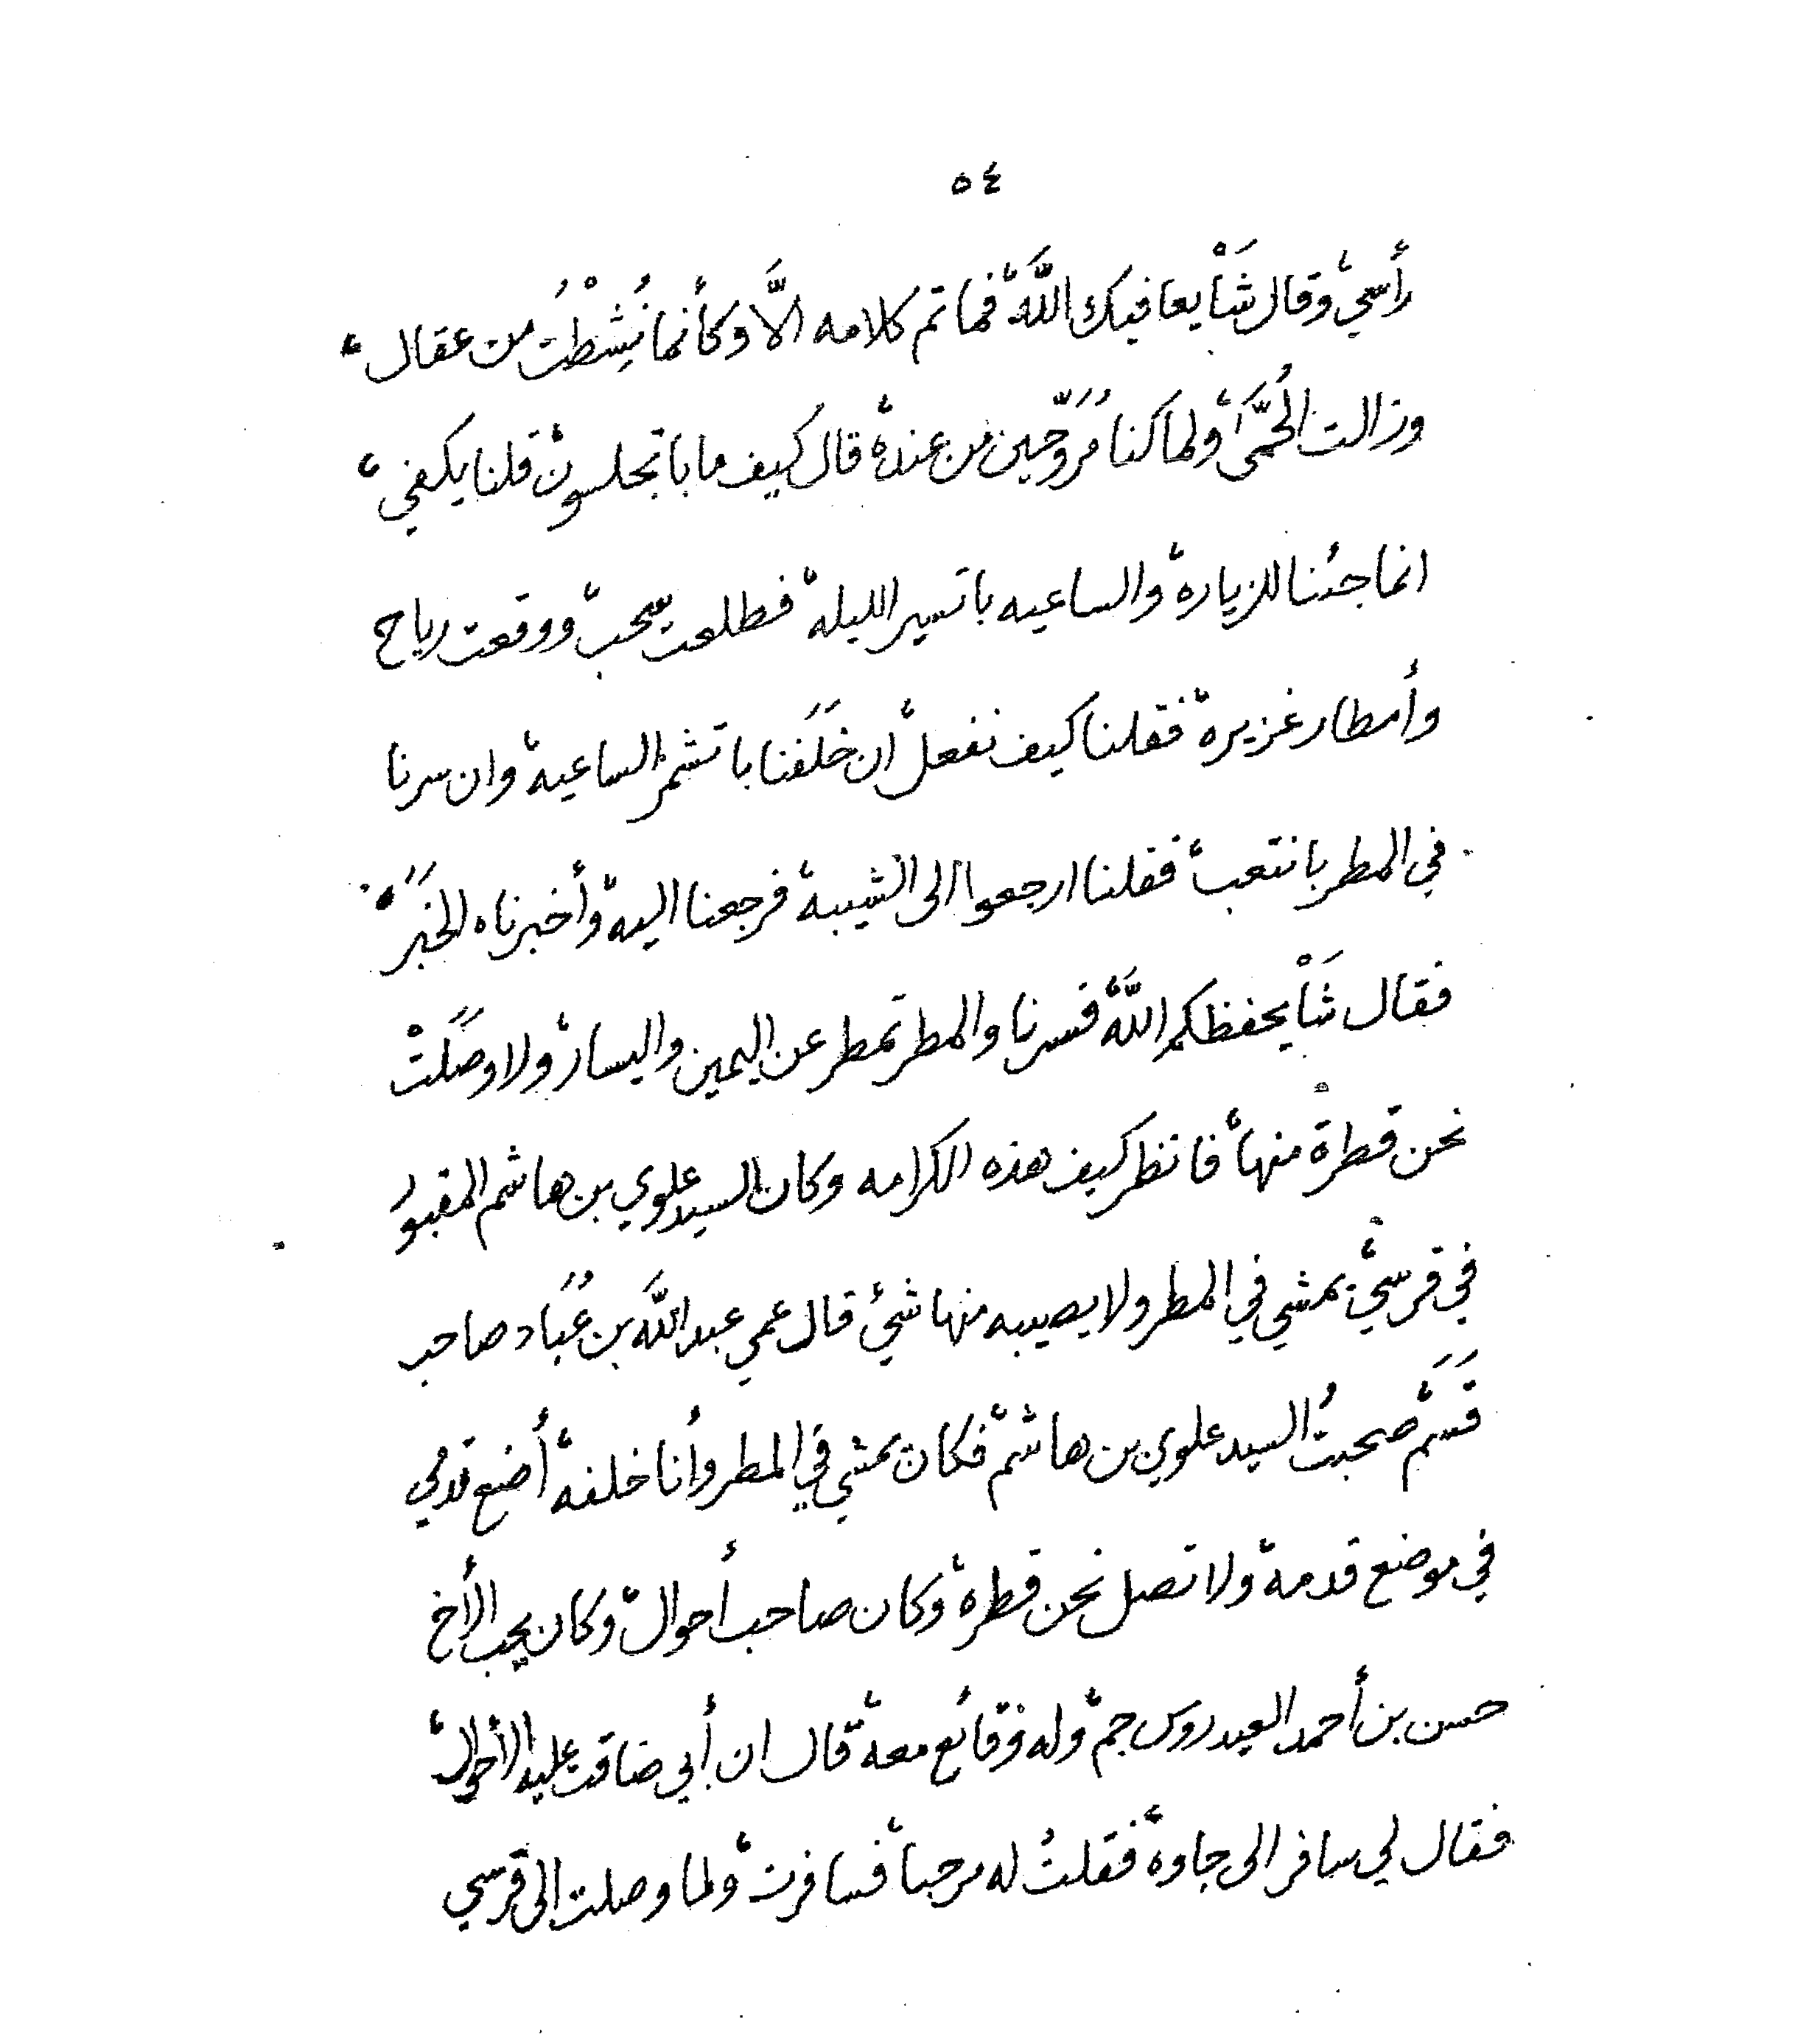 ٥٤
رأسي، وقال شَاْ يعافيك اللَّه، فما تم كلامه الَّا وكأنما نُشِطْتُ من عقال،
وزالت الحُمَّى، ولما كنا مُرَوّحِين من عنده، قال كيف ما با تجلسون، قلنا يكفي،
انما جئنا للزياره، والساعيه با تسير الليله، فطلعت سحب، ووقعت رياح
وأمطار غزيره، فقلنا كيف نفعل، ان خَلَفنا با تشمّر الساعية، وان سرنا
في المطر با نتعب، فقلنا ارجعوا الى الشيبه، فرجعنا اليه، وأخبرناه الخبَرَ،
فقال شَاْ يحفظكم اللَّه، فسرنا والمطر تمطر عن اليمين واليسار، ولا وصَلَتْ
نحن قطرة منها، فانظر كيف هذه الكرامه وكان السيد علوي بن هاشم المقبوُر
في قرسي، يمشي في المطر ولا يصيبه منها شيء، قال عمي عبد اللَّه بن عُبَاد صاحب
قَسَم، صحبتُ السيد علوي بن هاشم، فكان يمشي في المطر وأنا خلفه، أضع قدمي
في موضع قدمه، ولا تصل نحن قطره، وكان صاحب أحوال، وكان يحب الأخ
حسن بن أحمد العيدروس جم، وله وقائع معه، قال ان أبي ضاقت عليه الأحوال،
فقال لي سافر الى جاوه، فقلتُ له مرحبا، فسافرت، ولما وصلت الى قرسي